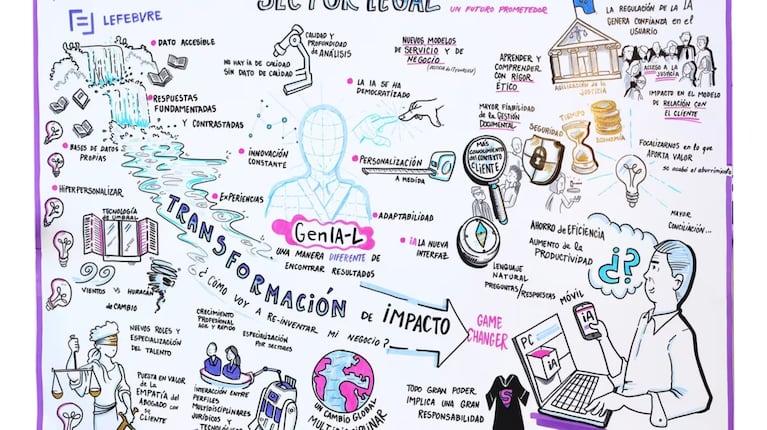 SECTOR LEGAL
UN FUTURO PROMETEDOR
LA REGULACIÓN DE LA IA
GENERA CONFIANZA EN EL
USUARIO
LEFEBVRE
DATO ACCESIBLE
NO HAY IA DE CALIDAD
SIN DATO DE CALIDAD
CALIDAD Y
PROFUNDIDAD
DE ANÁLISIS
NUEVOS MODELOS
DE SERVICIO Y DE
NEGOCIO
APRENDER Y
COMPRENDER
CON RIGOR
ÉTICO
AGILIZACIÓN DE LA
JUSTICIA
ACCESO A LA
JUSTICIA
IMPACTO EN EL MODELO
DE RELACIÓN CON
EL CLIENTE
RESPUESTAS
FUNDAMENTADAS
Y CONTRASTADAS
LA IA SE HA
DEMOCRATIZADO
MAYOR FIABILIDAD
DE LA GESTIÓN
DOCUMENTAL
SEGURIDAD
TIEMPO
ECONOMÍA
BASES DE DATOS
PROPIAS
INNOVACIÓN
CONSTANTE
PERSONALIZACIÓN
A MEDIDA
MÁS
CONOCIMIENTO
DEL CONTEXTO
CLIENTE
FOCALIZARNOS EN LO QUE
APORTA VALOR
se acabó el aburrimiento
HIPERPERSONALIZAR
EXPERIENCIAS
ADAPTABILIDAD
MAYOR
CONCILIACIÓN...
TECNOLOGÍA
DE UMBRAL
GenIA-L
UNA MANERA DIFERENTE DE
ENCONTRAR RESULTADOS
IA LA NUEVA
INTERFAZ
LENGUAJE
NATURAL
PREGUNTAS/RESPUESTAS
AHORRO DE EFICIENCIA
AUMENTO DE LA
PRODUCTIVIDAD
¿?
VIENTOS VS HURACÁN
DE CAMBIO
TRANSFORMACIÓN DE IMPACTO
¿CÓMO VOY A RE-INVENTAR MI NEGOCIO?
GAME
CHANGER
MÓVIL
IA
PC
IA
NUEVOS ROLES Y
ESPECIALIZACIÓN
DEL TALENTO
CRECIMIENTO
PROFESIONAL
ÁGIL Y RÁPIDO
ESPECIALIZACIÓN
POR SECTORES
PUESTA EN VALOR
DE LA
EMPATÍA DEL
ABOGADO CON
SU
CLIENTE
INTERACCIÓN ENTRE
PERFILES
MULTIDISCIPLINARES
JURÍDICOS Y
TECNOLÓGICOS
UN CAMBIO GLOBAL
MULTIDISCIPLINAR
TODO GRAN PODER,
IMPLICA UNA GRAN
RESPONSABILIDAD
S